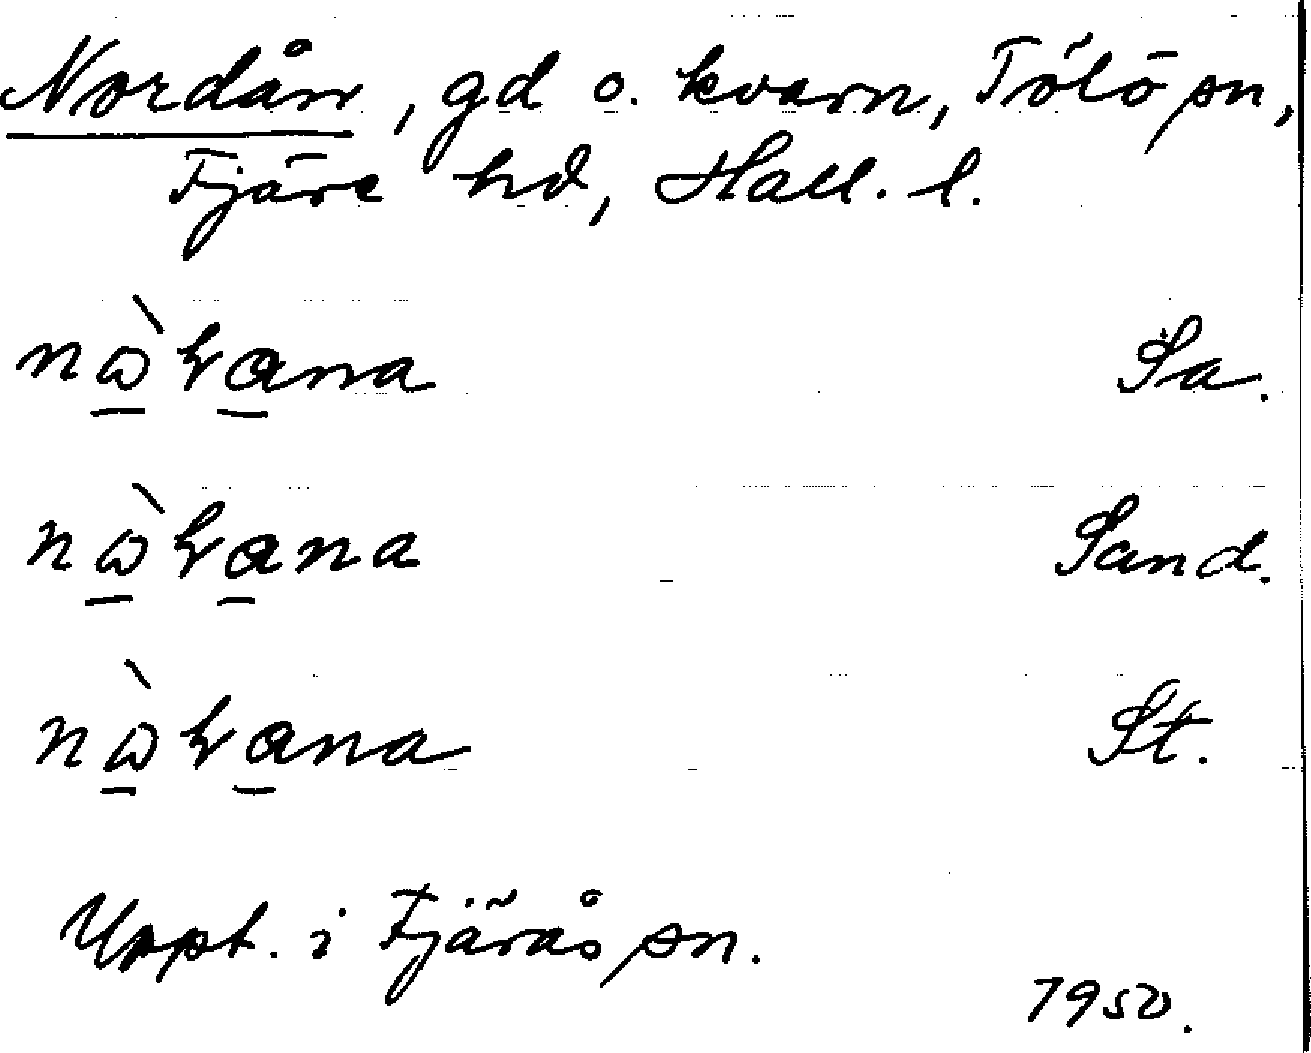 Nordån, gd o. kvarn, Tölö sn,
Fjäre hd, Hall. l.
nɷ̀rana Sa.
nɷ̀rana Sand.
nɷ̀rana St.
Uppt. i Fjärås sn.
1950.